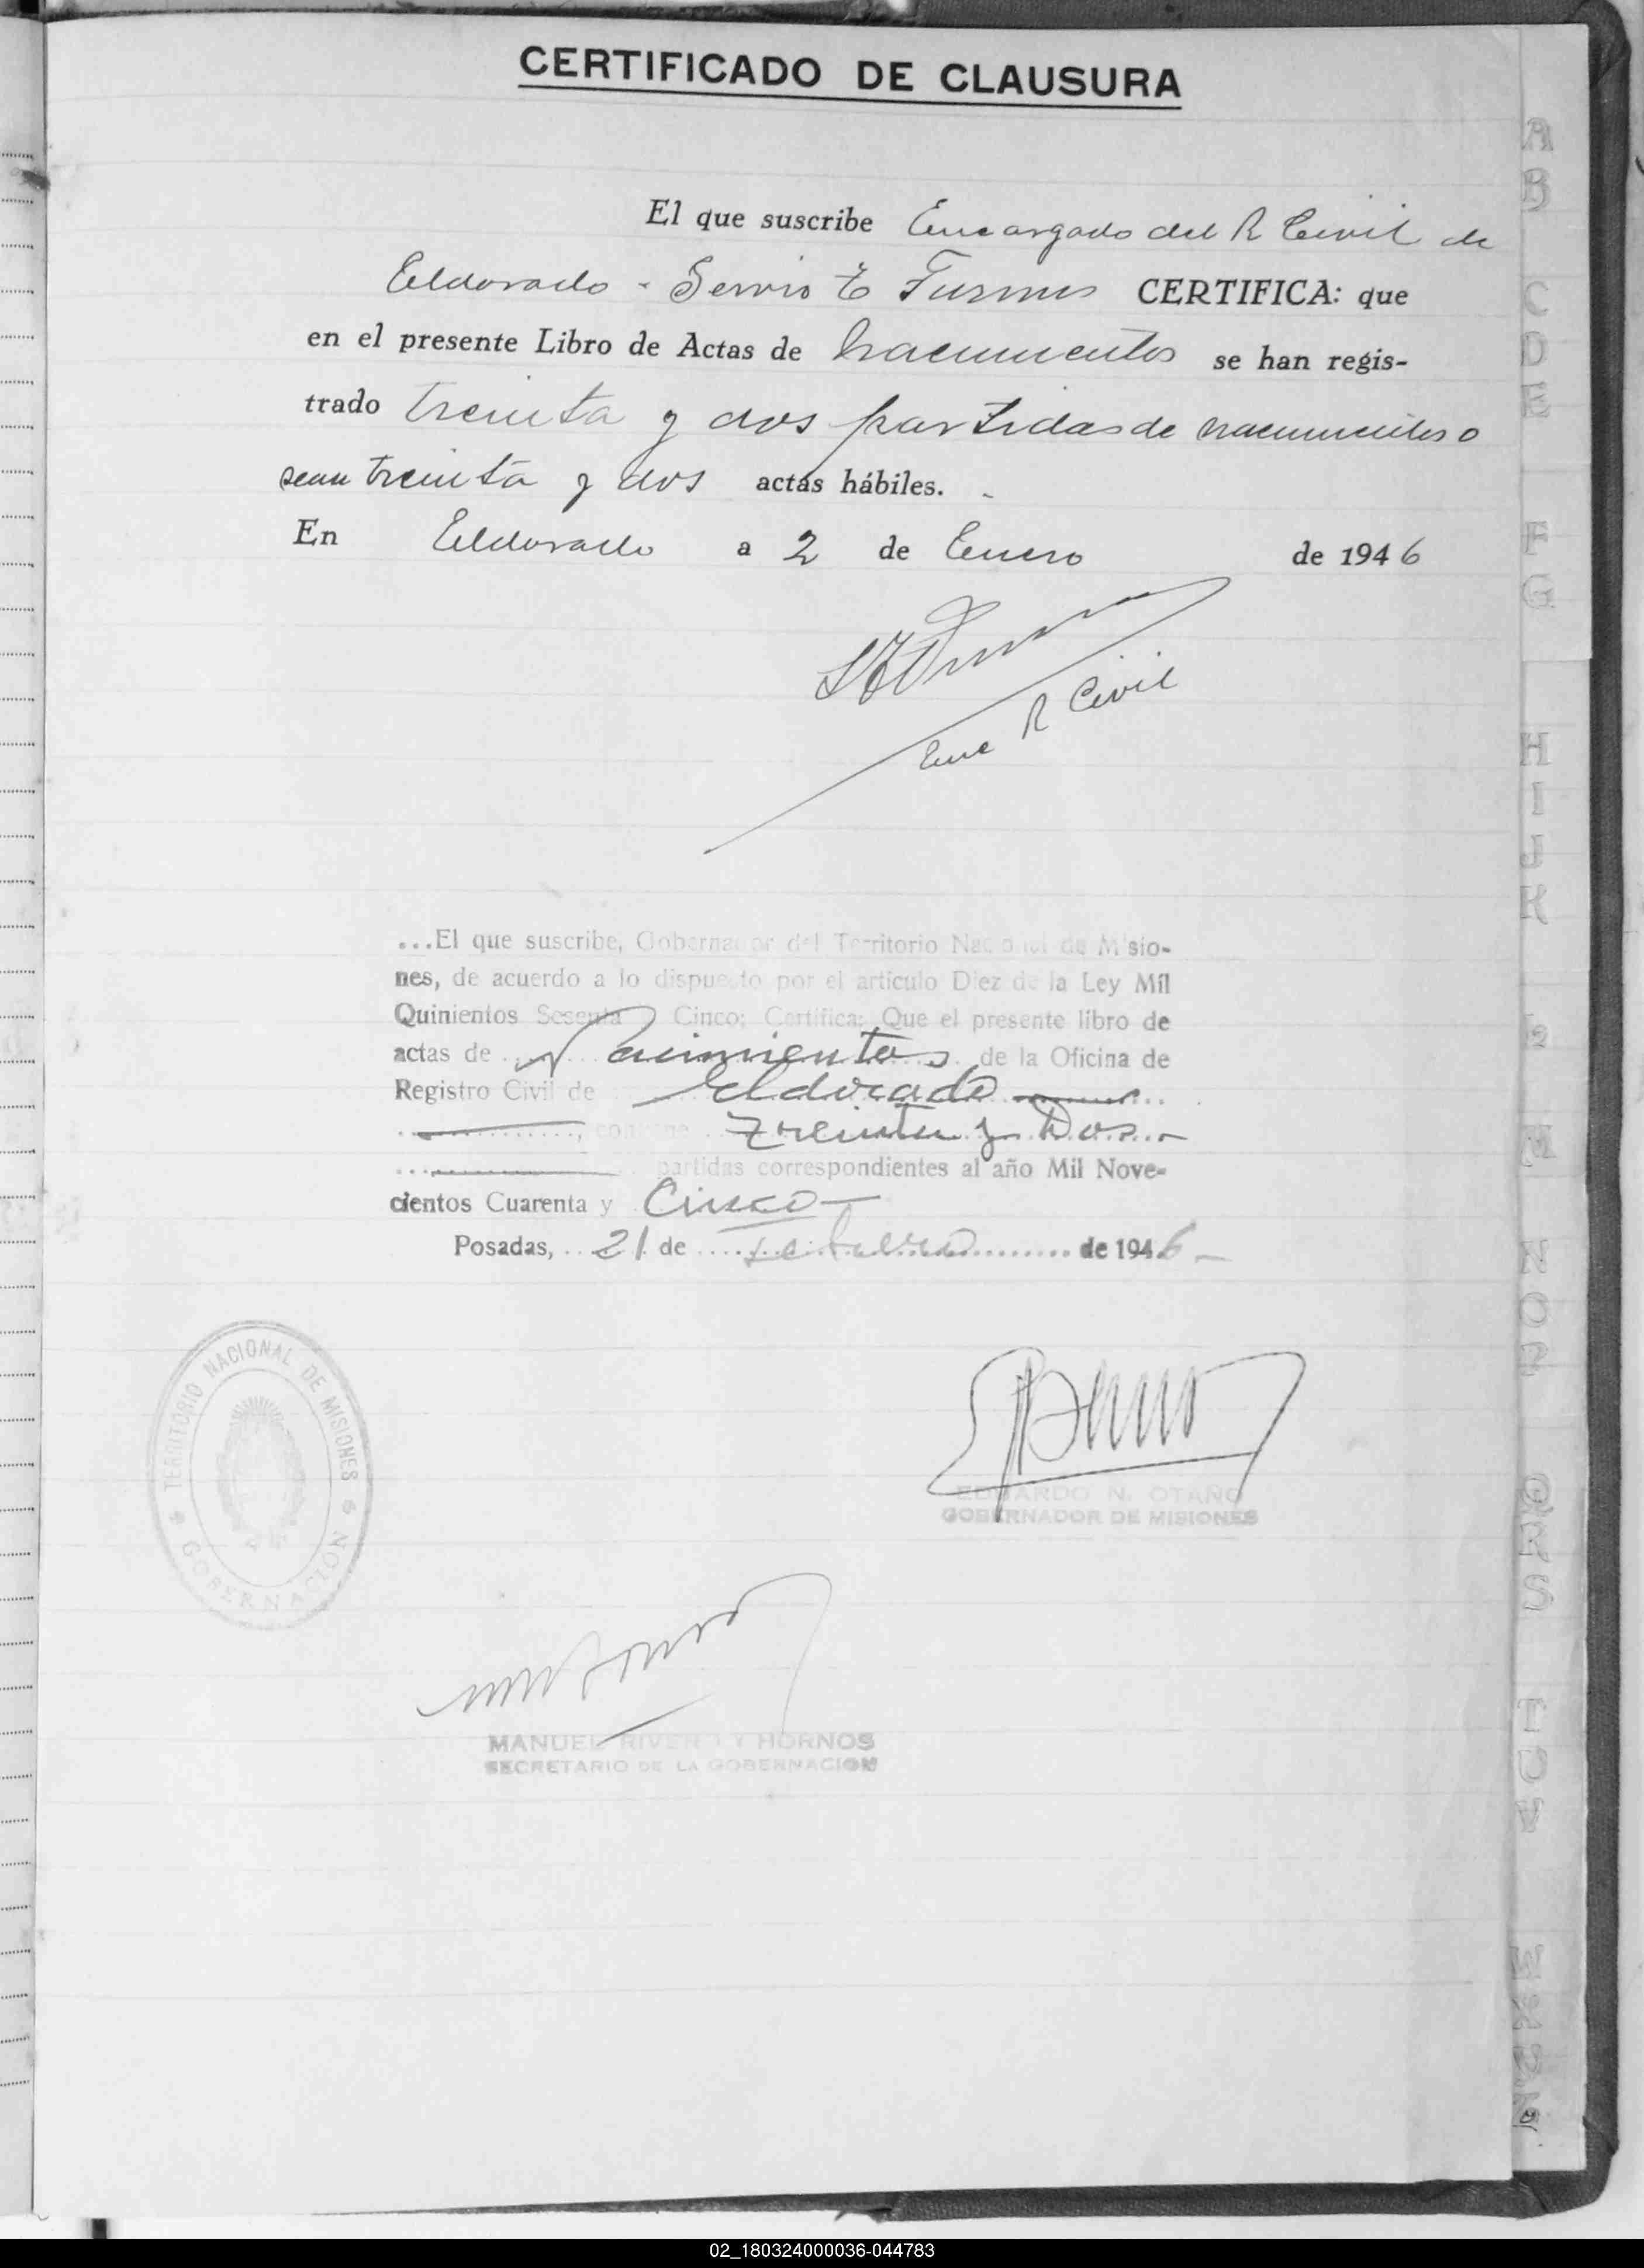 CERTIFICADO DE CLAUSURA
El que suscribe Encargado del R Civil de
Eldorado - Servio E CERTIFICA: que
en el presente Libro de Actas de nacimientos se han regis-
trado treinta y dos partidas de nacimientos o
sean treinta y dos actas hábiles.
En Eldorado a 2 de Enero de 1946
Enc R Civil
...El que suscribe, Gobernador del Territorio Nacional de Misio-
nes, de acuerdo a lo dispuesto por el artículo Diez de la Ley Mil
Quinientos Sesenta y Cinco; Certifica: Que el presente libro de
actas de Nacimientos de la Oficina de
Registro Civil de Eldorado
, contiene Treinta y Dos.-
partidas correspondientes al año Mil Nove-
cientos Cuarenta y Cinco-
Posadas, 21 de de 1946-
TERRITORIO NACIONAL DE MISIONES
GOBERNACION
EDUARDO N. OTAÑO
GOBERNADOR DE MISIONES
MANUEL RIVERO Y HORNOS
SECRETARIO DE LA GOBERNACION
A
B
C
D
E
F
G
H
I
J
K
02_180324000036-044783